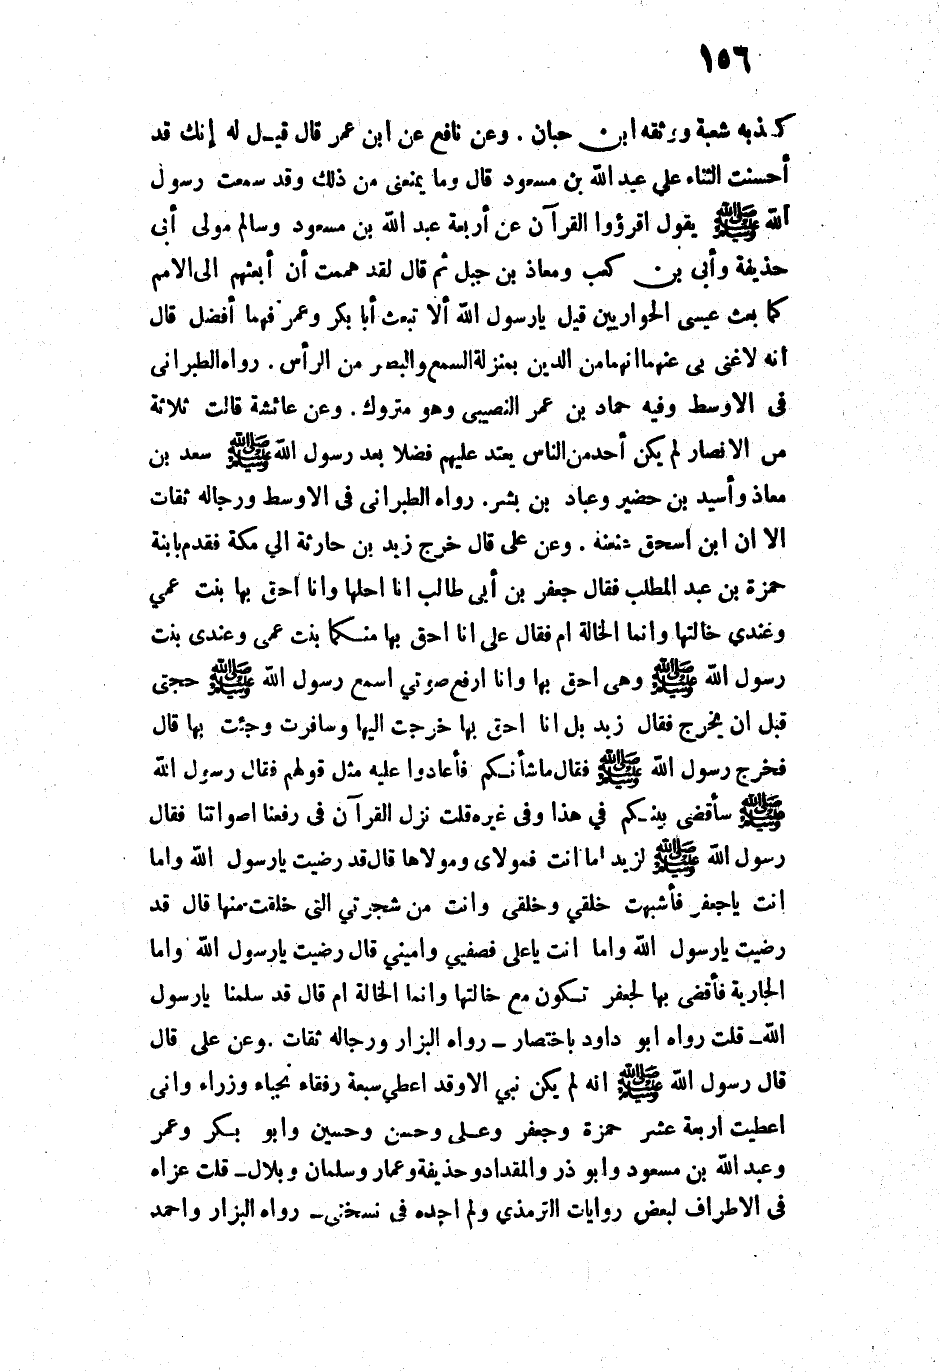 ١٥٦
كذبه شعبة ووثقه ابن حبان . وعن نافع عن ابن عمر قال قيل له إنك قد
أحسنت الثناء علي عبد الله بن مسعود قال وما يمنعني من ذلك وقد سمعت رسول
الله ﷺ يقول اقرؤوا القرآن عن أربعة عبد الله بن مسعود وسالم مولى أبى
حذيفة وأبى بن كعب ومعاذ بن جبل ثم قال لقد هممت أن أبعثهم الى الامم
كما بعث عيسى الحواريين قيل يارسول الله ألا تبعث أبا بكر وعمر فهما أفضل قال
أنه لاغنى بى عنهما انهما من الدين بمنزلة السمع والبصر من الرأس . رواه الطبرانى
فى الاوسط وفيه حماد بن عمر النصيبى وهو متروك . وعن عائشة قالت ثلاثة
من الانصار لم يكن أحد من الناس يعتد عليهم فضلا بعد رسول الله ﷺ سعد بن
معاذ وأسيد بن حضير وعباد بن بشر . رواه الطبرانى فى الاوسط ورجاله ثقات
الا ان ابن اسحق عنعنه . وعن على قال خرج زيد بن حارثة الي مكة فقدم بابنة
حمزة بن عبد المطلب فقال جعفر بن أبى طالب انا احلها وانا احق بها بنت عمي
وعندي خالتها وانما الخالة ام فقال على انا احق بها منكما بنت عمى وعندى بنت
رسول الله ﷺ وهى احق بها وانا ارفع صوتي اسمع رسول الله ﷺ حجتى
قبل ان يخرج فقال زيد بل انا احق بها خرجت اليها وسافرت وجئت بها قال
فخرج رسول الله ﷺ فقال ماشأنكم فأعادوا عليه مثل قولهم فقال رسول الله
ﷺ سأقضى بينكم في هذا وفى غيره قلت نزل القرآن فى رفعنا اصواتنا فقال
رسول الله ﷺ لزيد اما انت فمولاى ومولاها قال قد رضيت يارسول الله واما
انت ياجعفر فأشبهت خلقي وخلقى وانت من شجرتي التى خلقت منها قال قد
رضيت يارسول الله واما انت ياعلى فصفيي واميني قال رضيت يارسول الله واما
الجارية فأقضى بها لجعفر تكون مع خالتها وانما الخالة ام قال قد سلمنا يارسول
الله ـ قلت رواه ابو داود باختصار ـ رواه البزار ورجاله ثقات . وعن على قال
قال رسول الله ﷺ انه لم يكن نبي الا وقد اعطي سبعة رفقاء نجباء وزراء وانى
اعطيت اربعة عشر حمزة وجعفر وعلى وحسن وحسين وابو بكر وعمر
وعبد الله بن مسعود وابو ذر والمقداد وحذيفة وعمار وسلمان وبلال ـ قلت عزاه
فى الاطراف لبعض روايات الترمذي ولم اجده فى نسختى ـ رواه البزار واحمد